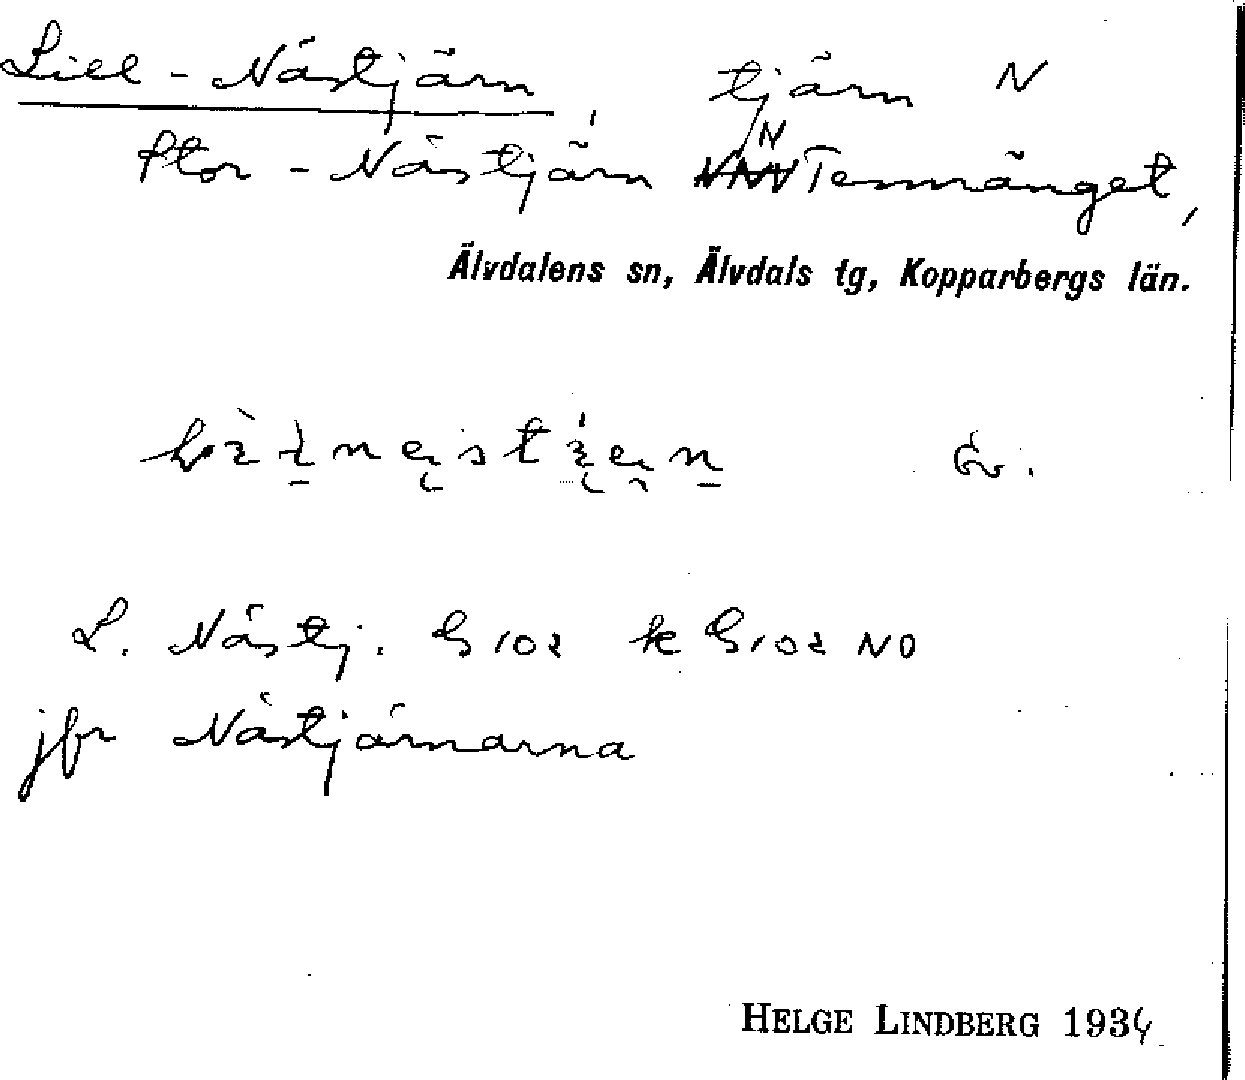 Lill-Nästjärn, tjärn N
Stor-Nästjärn N Tennänget,
Älvdalens sn, Älvdals tg, Kopparbergs län.
Äv.
L. Nästj. G102 k G102 NO
jfr Nästjärnarna
HELGE LINDBERG 1934